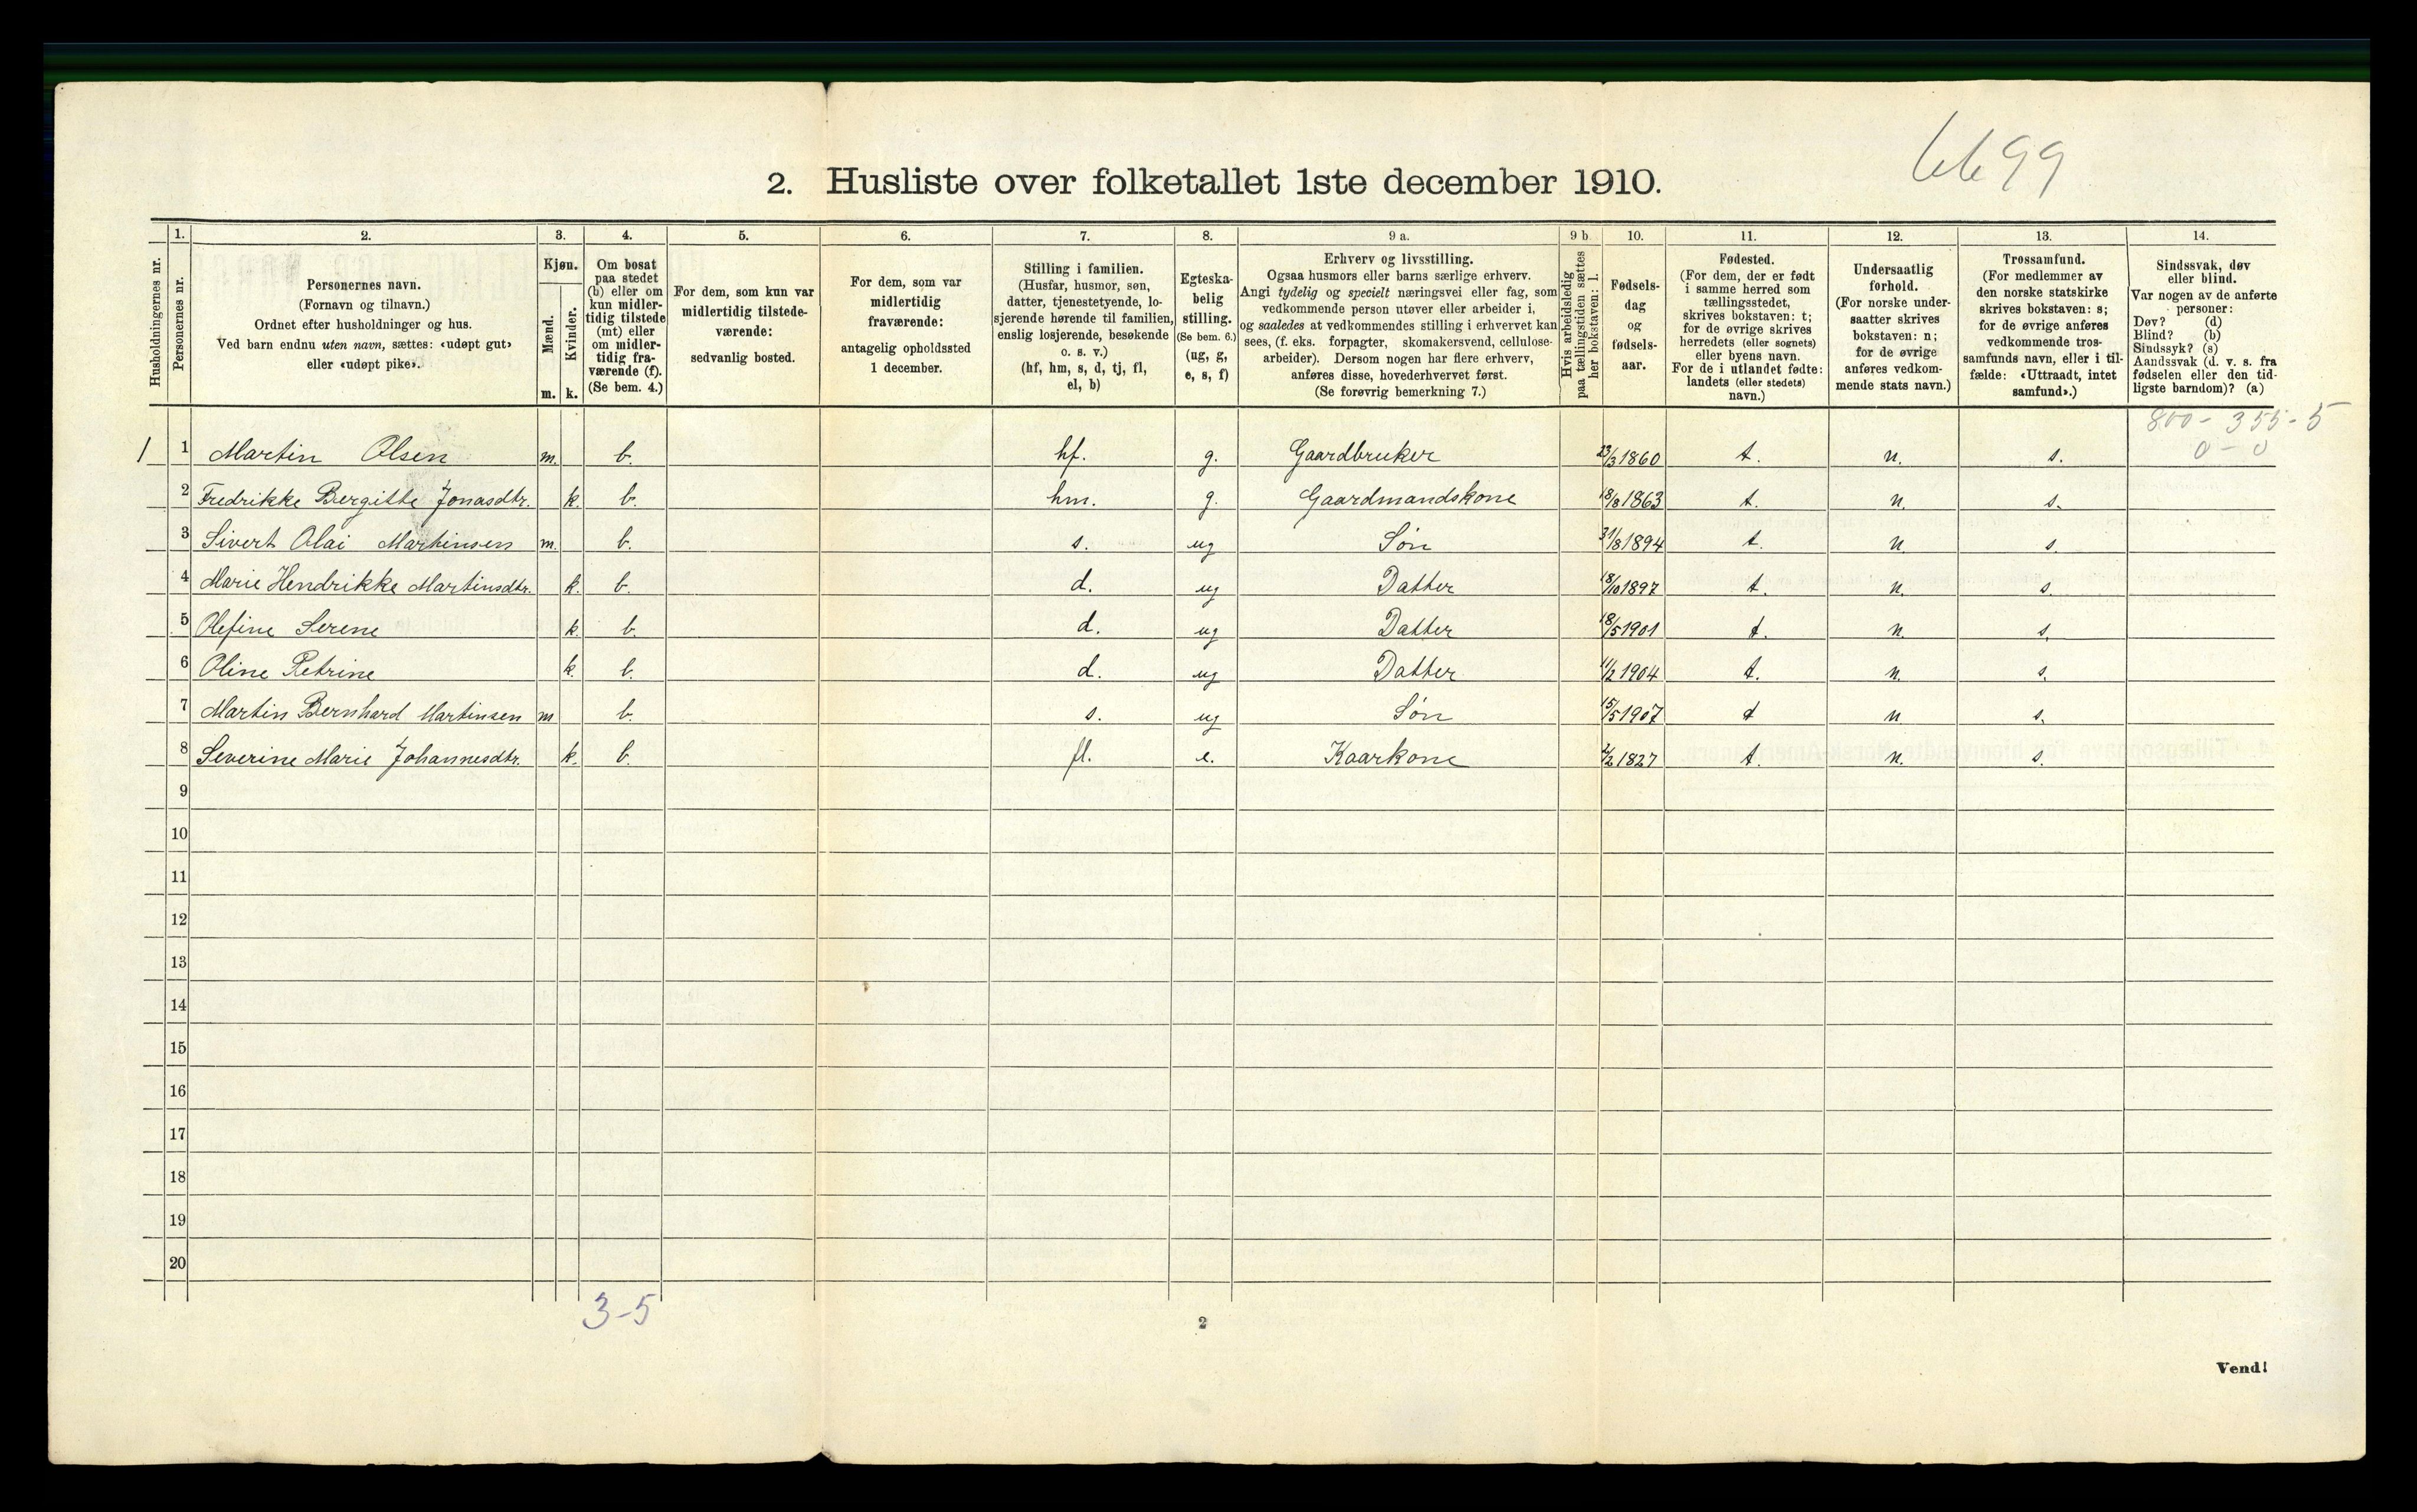 6699
2. Husliste over folketallet 1ste december 1910.
Husholdningernes nr.
1.
Personernes nr.
2.
Personernes navn.
(Fornavn og tilnavn.)
Ordnet efter husholdninger og hus.
Ved barn endnu uten navn, sættes: «udøpt gut»
eller «udøpt pike».
3.
Kjøn.
Mænd.
Kvinder.
m. k.
4.
Om bosat
paa stedet
(b) eller om
kun midler-
tidig tilstede
(mt) eller
om midler-
tidig fra-
værende (f).
(Se bem. 4.)
5.
For dem, som kun var
midlertidig tilstede-
værende:
sedvanlig bosted.
6.
For dem, som var
midlertidig
fraværende:
antagelig opholdssted
1 december.
7.
Stilling i familien.
(Husfar, husmor, søn,
datter, tjenestetyende, lo-
sjerende hørende til familien,
enslig losjerende, besøkende
o. s. v.)
(hf, hm, s, d, tj, fl,
el, b)
8.
Egteska-
belig
stilling.
(Se bem. 6.)
(ug, g,
e, s, f)
9 a.
Erhverv og livsstilling.
Ogsaa husmors eller barns særlige erhverv.
Angi tydelig og specielt næringsvei eller fag, som
vedkommende person utøver eller arbeider i,
og saaledes at vedkommendes stilling i erhvervet kan
sees, (f. eks. forpagter, skomakersvend, cellulose-
arbeider). Dersom nogen har flere erhverv,
anføres disse, hovederhvervet først.
(Se forøvrig bemerkning 7.)
9 b.
Hvis arbeidsledig
paa tællingstiden sættes
her bokstaven: l.
10.
Fødsels-
dag
og
fødsels-
aar.
11.
Fødested.
(For dem, der er født
i samme herred som
tællingsstedet,
skrives bokstaven: t;
for de øvrige skrives
herredets (eller sognets)
eller byens navn.
For de i utlandet fødte:
landets (eller stedets)
navn.)
12.
Undersaatlig
forhold.
(For norske under-
saatter skrives
bokstaven: n;
for de øvrige
anføres vedkom-
mende stats navn.)
13.
Trossamfund.
(For medlemmer av
den norske statskirke
skrives bokstaven: s;
for de øvrige anføres
vedkommende tros-
samfunds navn, eller i til-
fælde: «Uttraadt, intet
samfund».)
14.
Sindssvak, døv
eller blind.
Var nogen av de anførte
personer:
Døv? (d)
Blind? (b)
Sindssyk? (s)
Aandssvak (d. v. s. fra
fødselen eller den tid-
ligste barndom)? (a)
800 - 355 - 5
0 - 0
1 1 Martin Olsen m. b. hf. g. Gaardbruker 23/3 1860 t. n. s.
2 Fredrikke Bergitte Jonasdtr. k. b. hm. g. Gaardmandskone 18/8 1863 t. n. s.
3 Sivert Olai Martinsen m. b. s. ug Søn 31/8 1894 t. n. s.
4 Marie Hendrikke Martinsdtr. k. b. d. ug Datter 18/10 1897 t. n. s.
5 Olefine Serene k. b. d. ug Datter 18/5 1901 t. n. s.
6 Oline Petrine k. b. d. ug Datter 11/2 1904 t. n. s.
7 Martin Bernhard Martinsen m b. s. ug Søn 15/5 1907 t n s.
8 Severine Marie Johannesdtr. k. b. fl. e. Kaarkone 2/2 1827 t. n. s.
9
10
11
12
13
14
15
16
17
18
19
20
3-5
2
Vend!